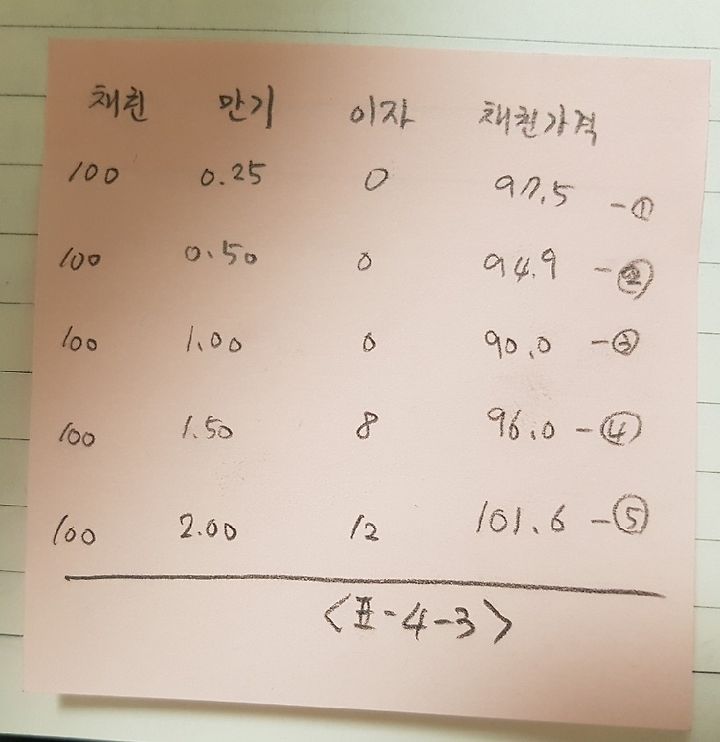 채권 만기 이자 채권가격
100 0.25 0 97.5 -①
100 0.50 0 94.9 -②
100 1.00 0 90.0 -③
100 1.50 8 96.0 -④
100 2.00 12 101.6 -⑤
<표-4-3>